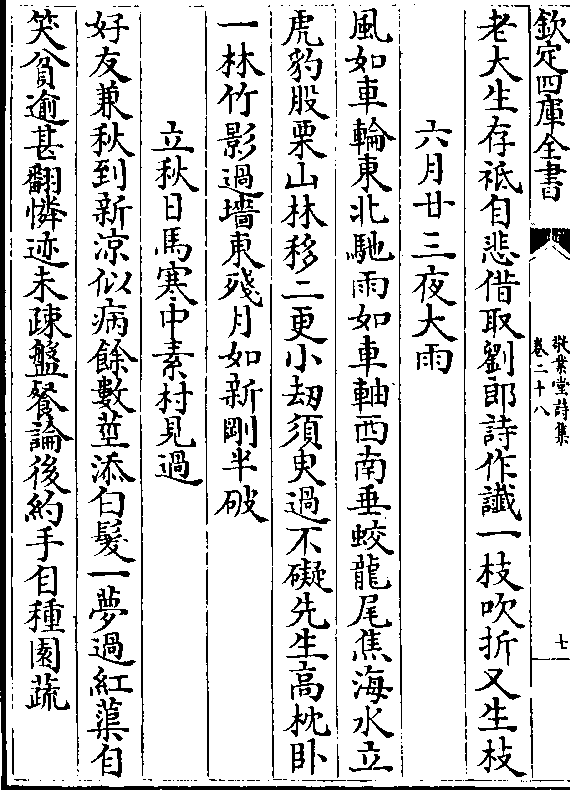 欽定四庫全書
敬業堂詩集
卷二十八
七
老大生存祗自悲借取劉郎詩作讖一枝吹折又生枝
六月廿三夜大雨
風如車輪東北馳雨如車軸西南垂蛟龍尾焦海水立
虎豹股栗山林移二更小劫須臾過不礙先生高枕卧
一林竹影過墻東殘月如新剛半破
立秋日馬寒中素村見過
好友兼秋到新涼似病餘數莖添白髮一夢過紅蕖自
笑貧逾甚翻憐迹未疎盤餐論後約手自種園蔬